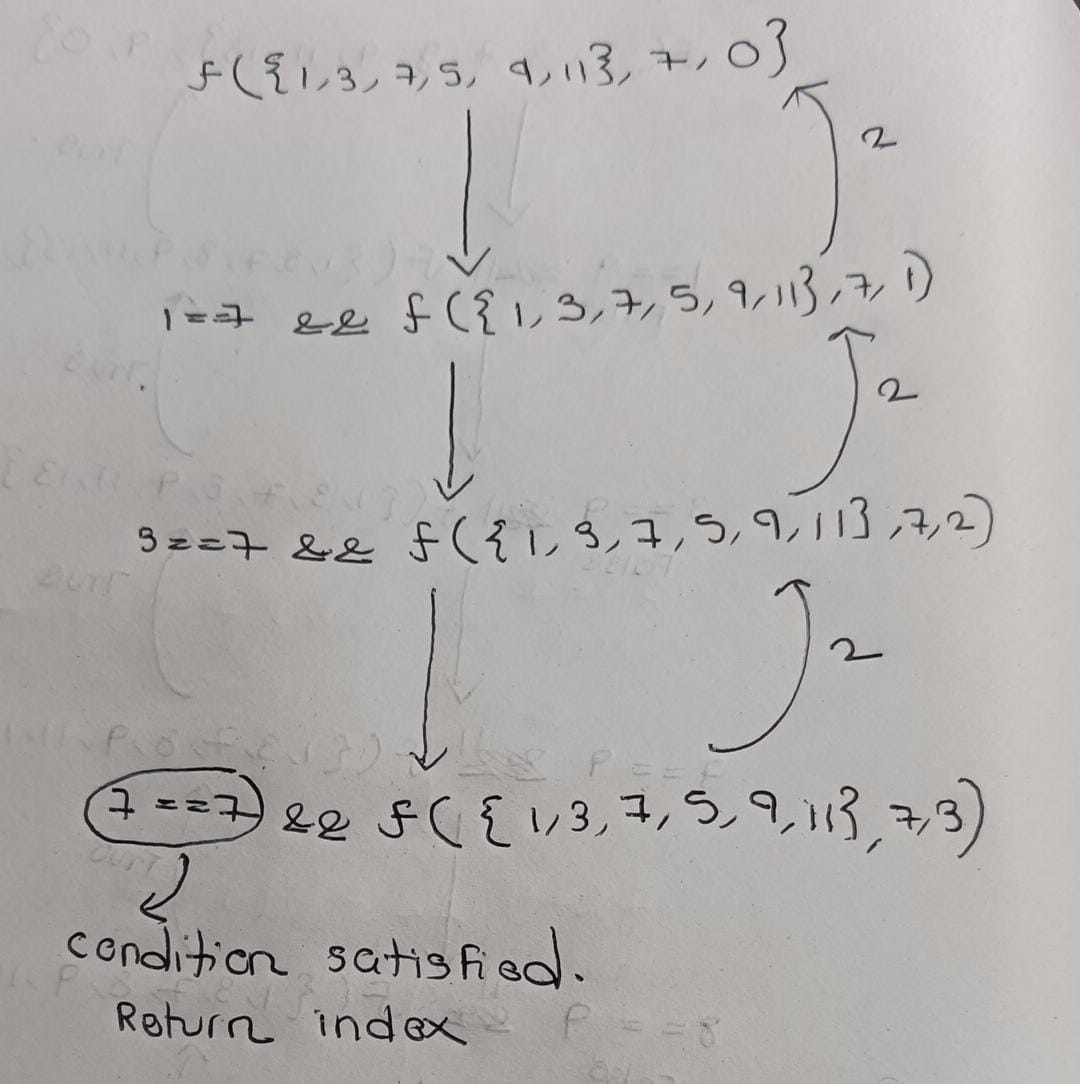 f({1,3,7,5, 9,11}, 7, 0}
2
1==7 && f({1,3,7,5,9,11},7,1)
2
3==7 && f({1,3,7,5,9,11},7,2)
2
7==7 && f({1,3,7,5,9,11},7,3)
condition satisfied.
Return index